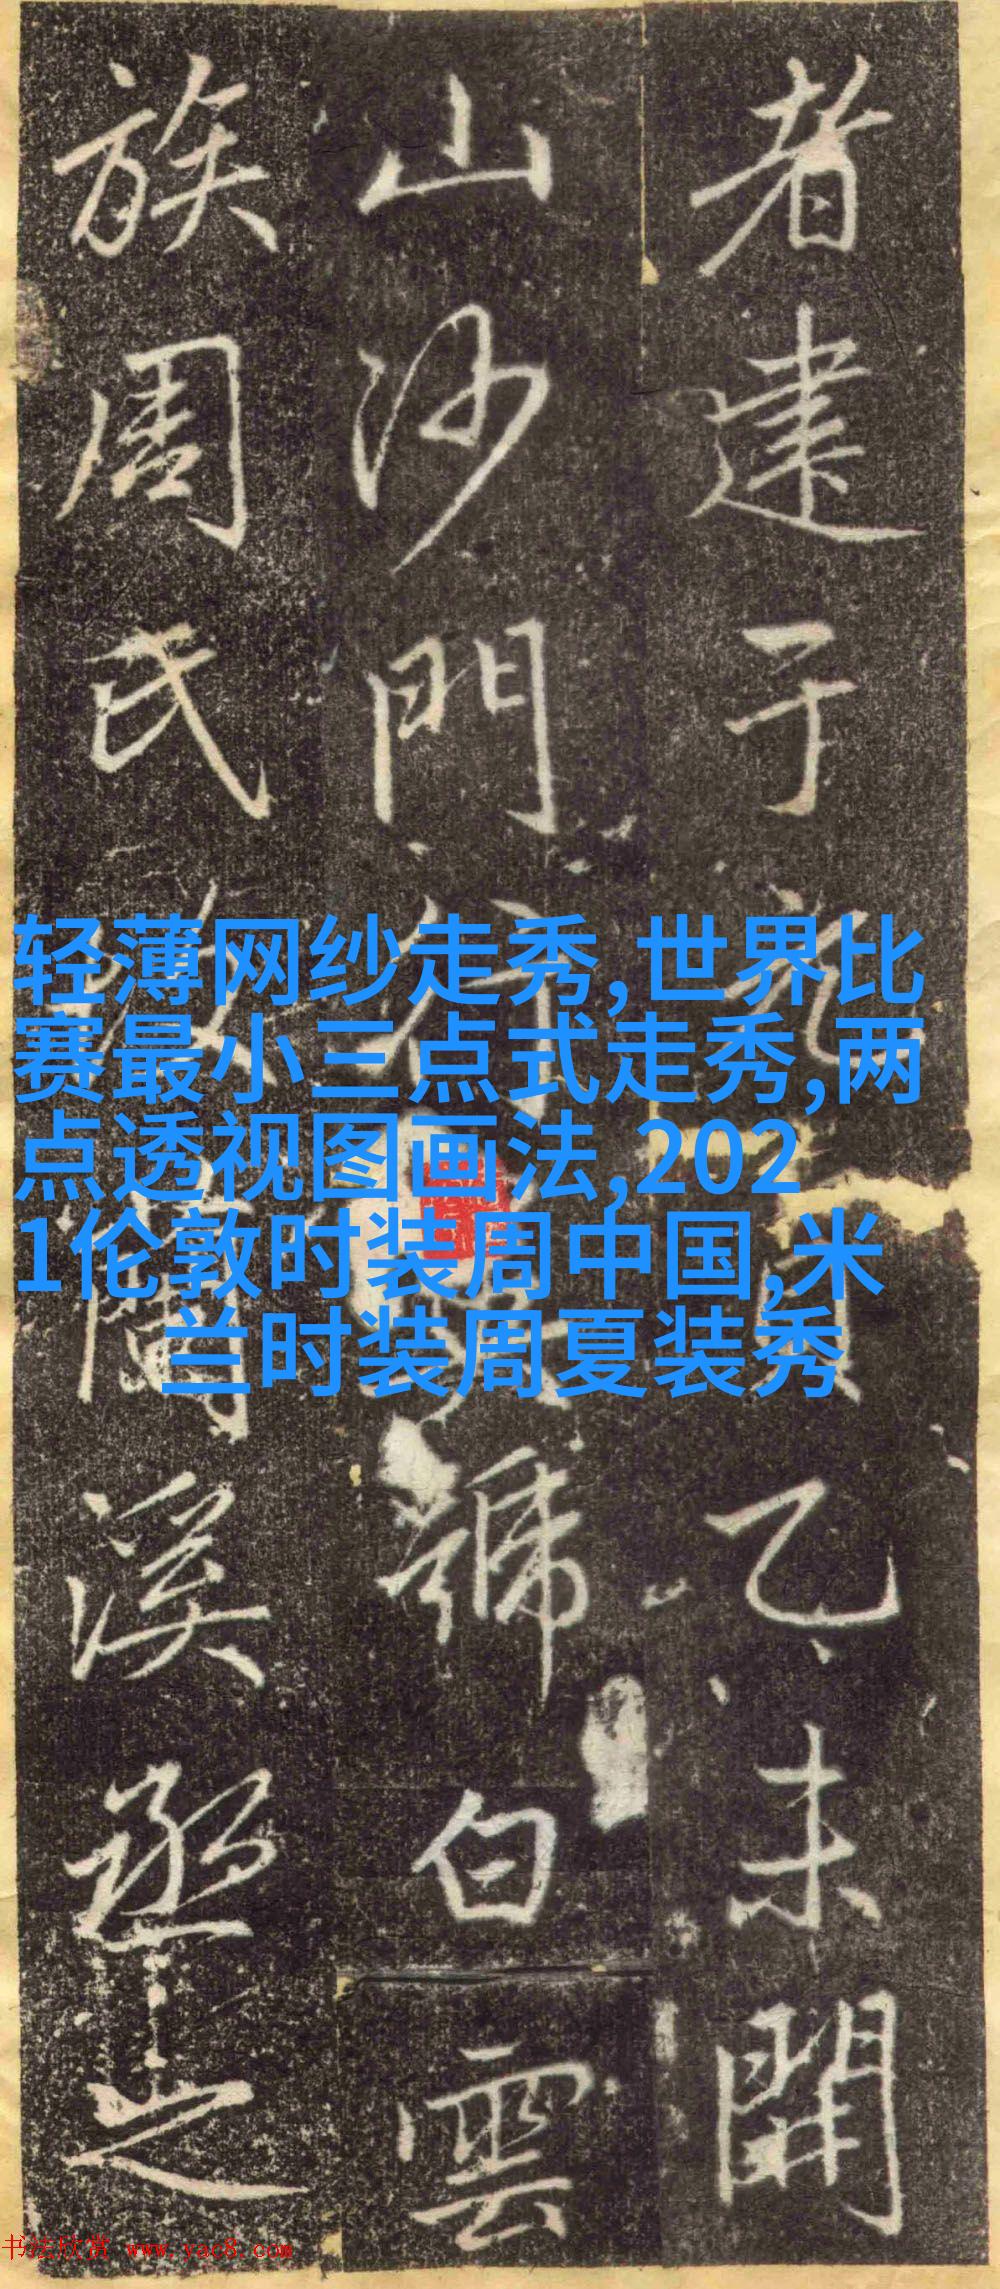 者建于元貞乙未開
山沙門行號白雲
族周氏溪之
轻薄网纱走秀,世界比
赛最小三点式走秀,两
点透视图画法,202
1伦敦时装周中国,米
兰时装周夏装秀
书法欣赏 www.yac8.com